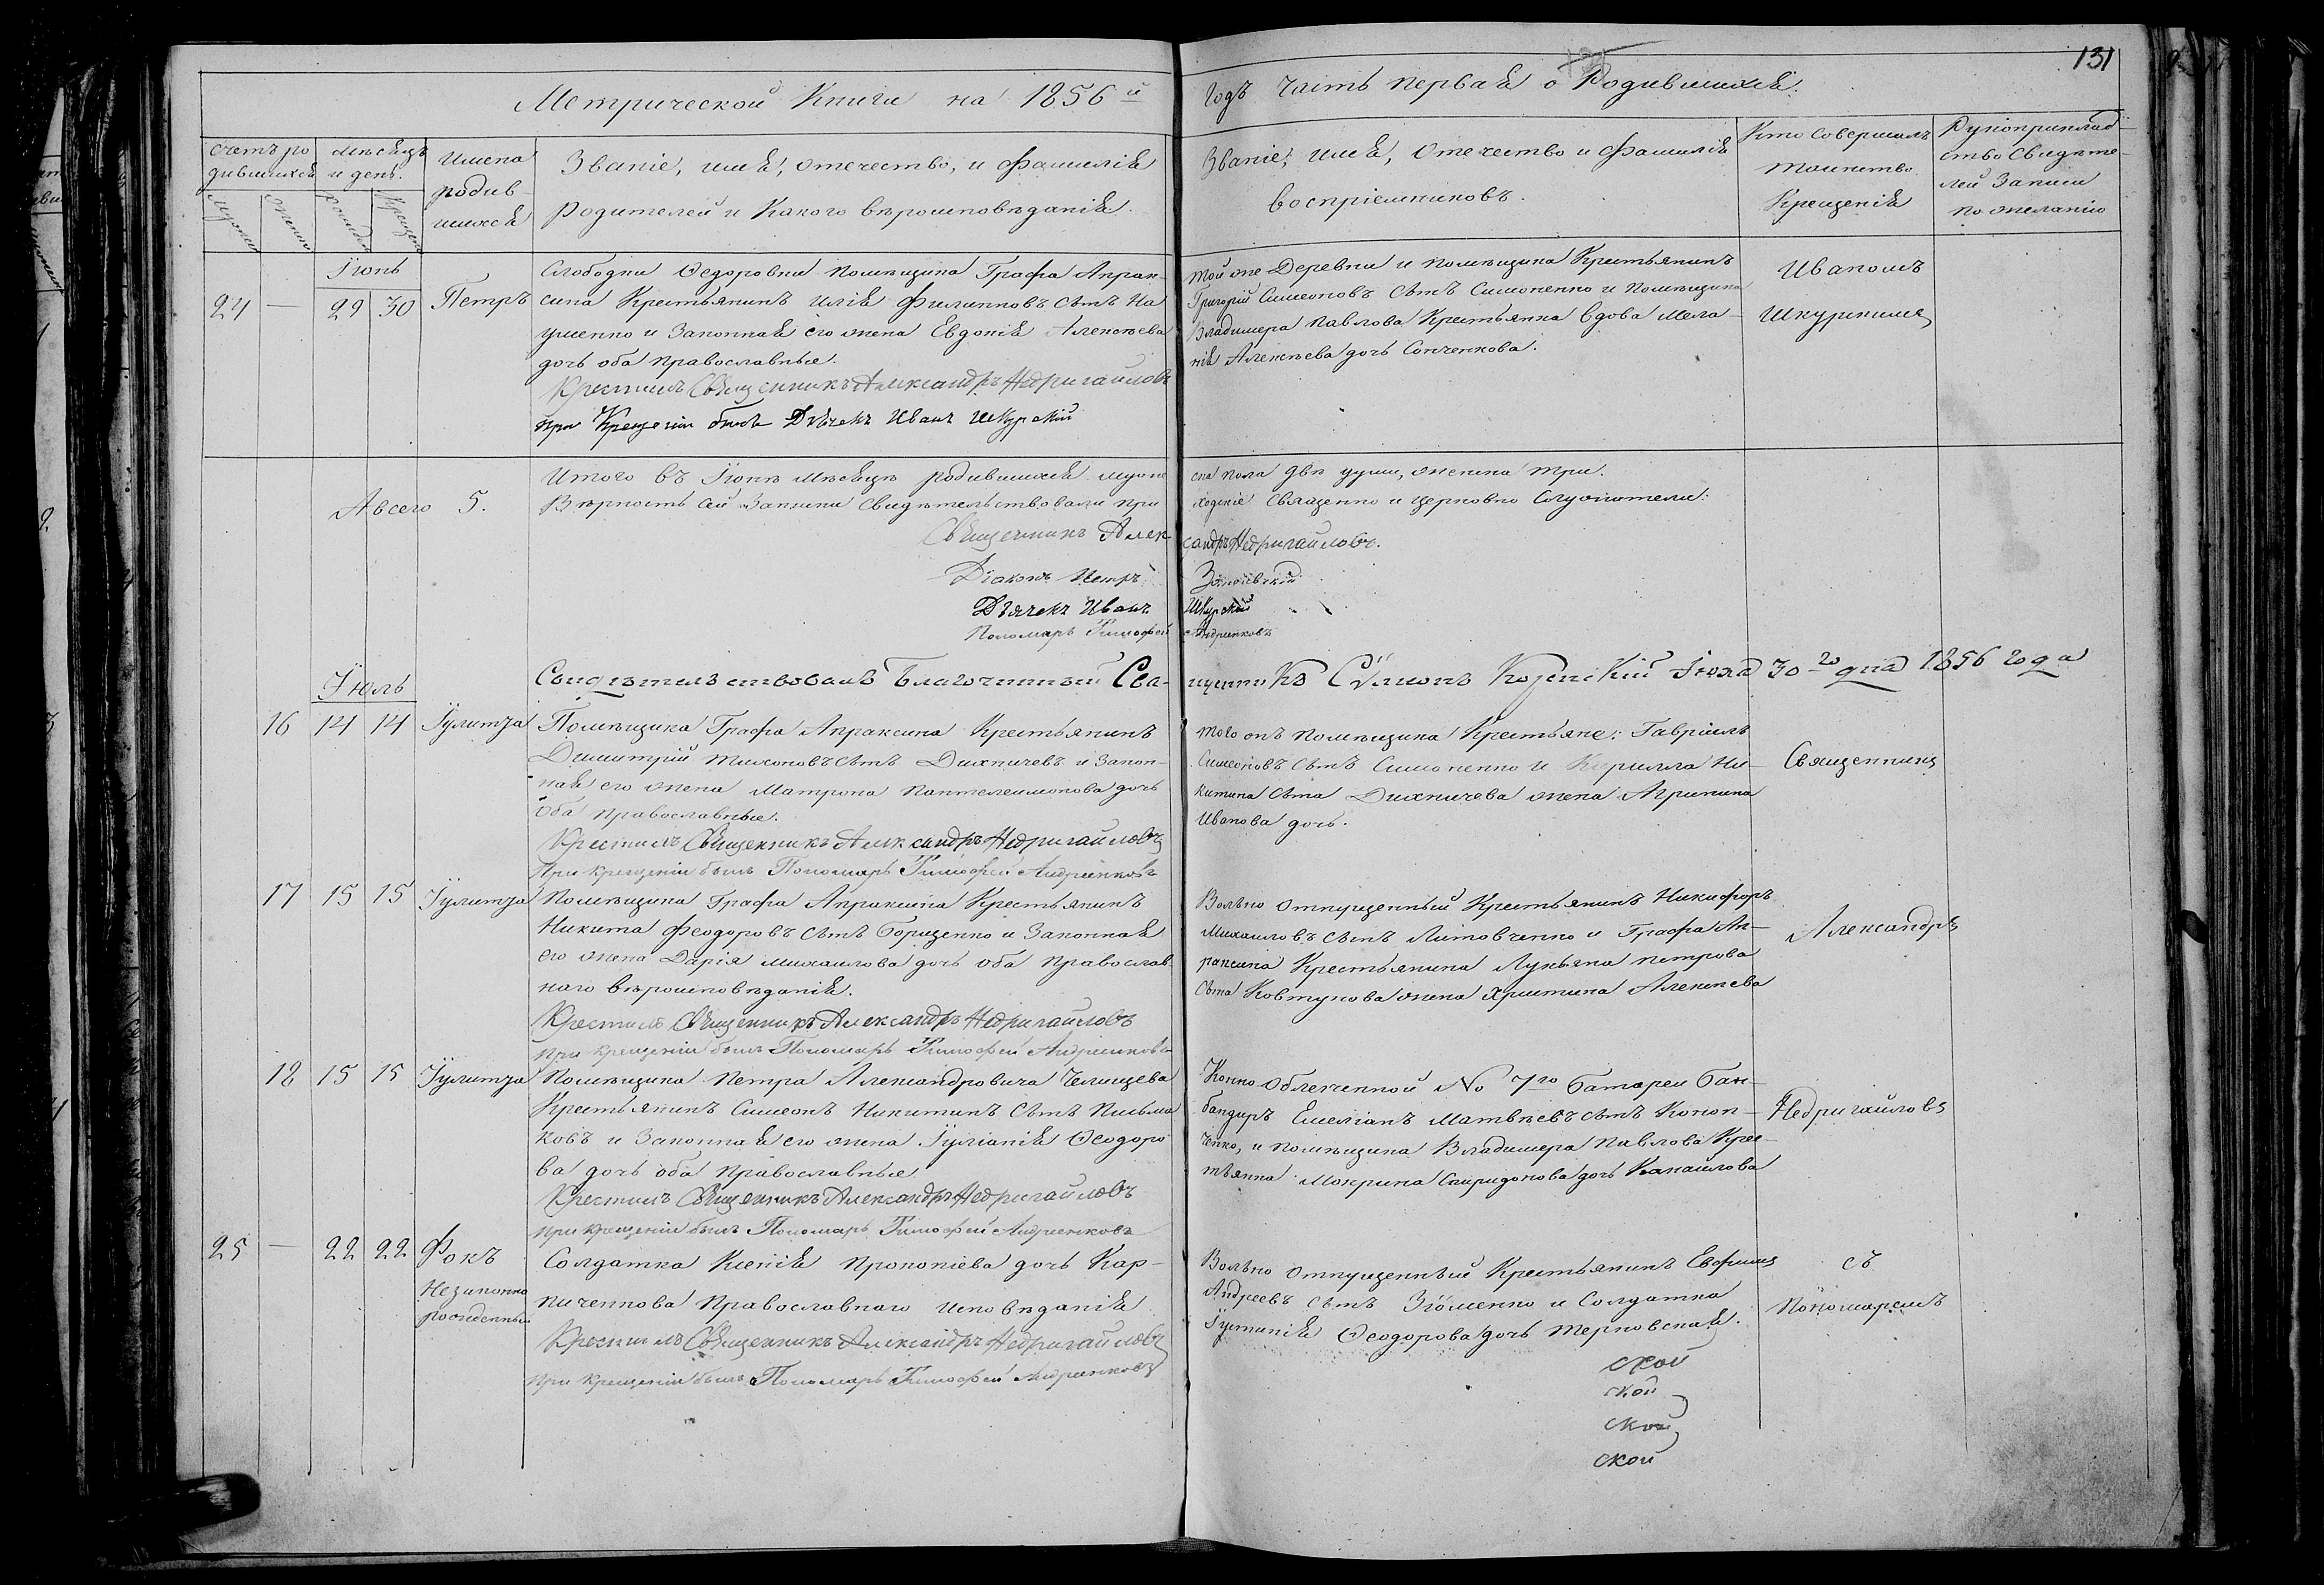 131
Метрической Книги на 1856й
Годъ часть первая о Родившихся.
Счетъ ро
дившихся
мѣсяцъ
и день.
Имена
родив
шихся
Званіе, имя, отечество, и фамилія
Родителей и Какого вѣроисповѣданія.
Званіе, имя, отечество и фамилія
воспріемниковъ.
Кто Совершалъ
таинство
Крещенія
Рукоприклад
ство Свидѣте-
лей Записи
по желанію
Іюнь
24 — 29 30 Петръ
Слободки Федоровки помѣщика Графа Апрак-
сина Крестьянинъ Илія Филипповъ сынъ На
уменко и Законная его жена Евдокія Алексѣева
дочь оба православные.
Крестилъ Священникъ Александръ Недригайловъ
при Крещеніи былъ Дьячекъ Иванъ Шкурскій
той же Деревни и помѣщика Крестьянинъ
Григорій Симеоновъ сынъ Симоненко и помѣщика
Владимера Павлова Крестьянка вдова Мела-
нія Алексѣева дочь
Иваномъ
Шкурскимъ
А всего 5.
Итого въ Іюнѣ мѣсяцѣ родившихся муже
ска пола двѣ души, женска три.
Вѣрность сей Записи Свидѣтельствовали при
ходскіе Священно и церковно Служители:
Священникъ Алек
сандръ Недригайловъ.
Діаконъ Петръ
Дьячекъ Иванъ
Шкурскій
Пономарь Тимофей
Андріенковъ
Свидѣтельствовалъ Благочинный Свя-
щенникъ Сѵмеонъ 30го дня 1856 года
Іюль
16 14 14 Іулитта
Помѣщика Графа Апраксина Крестьянинъ
Димитрій Тихоновъ сынъ Дихничевъ и Закон-
ная его жена Матрона Пантелеимонова дочь
оба православные.
Крестилъ Священникъ Александръ Недригайловъ
При крещеніи былъ Пономарь Тимофей Андріенковъ
того жъ помѣщика Крестьяне: Гавріилъ
Симеоновъ сынъ Симоненко и Кирилла Ни-
китина сына Дихничева жена Агрипина
Иванова дочь.
Священникъ
17 15 15 Іулитта
Помѣщика Графа Апраксина Крестьянинъ
Никита Феодоровъ сынъ Борищенко и Законная
его жена Дарія Михаилова дочь оба православ-
наго вѣроисповѣданія.
Крестилъ Священникъ Александръ Недригайловъ
при крещеніи былъ Пономарь Тимофей Андріенковъ
Вольно отпущенный Крестьянинъ Никифоръ
Михаиловъ сынъ Литовченко и Графа Ап-
раксина Крестьянина Лукьяна Петрова
сына Ковтунова жена Христина Алексѣева
Александръ
18 15 15 Іулитта
Помѣщика Петра Александровича Челищева
Крестьянинъ Симеонъ Никитинъ сынъ Письма
ковъ и Законная его жена Іуліанія Ѳеодоро
ва дочь оба православные
Крестилъ Священникъ Александръ Недригайловъ
при крещеніи былъ Пономарь Тимофей Андріенковъ
Конно облегченной № 7го батареи бан-
бандиръ Емеліанъ Матвѣевъ сынъ Конон-
ченко, и помѣщика Владимера Павлова Крес-
тьянка Мокрина Спиридонова дочь
Недригайловъ
25 — 22 22 Фокъ
Незаконно
рожденный
Солдатка Ксенія Прокопіева дочь Кар-
пиченкова Православнаго Исповѣданія
Крестилъ Священникъ Александръ Недригайловъ
при крещеніи былъ Пономарь Тимофей Андріенковъ
Вольно отпущенный Крестьянинъ Евфимъ
Андреевъ сынъ и Солдатка
Іустинія Ѳеодорова дочь Терновская.
съ
Пономаремъ
ской
ской
ской
ской